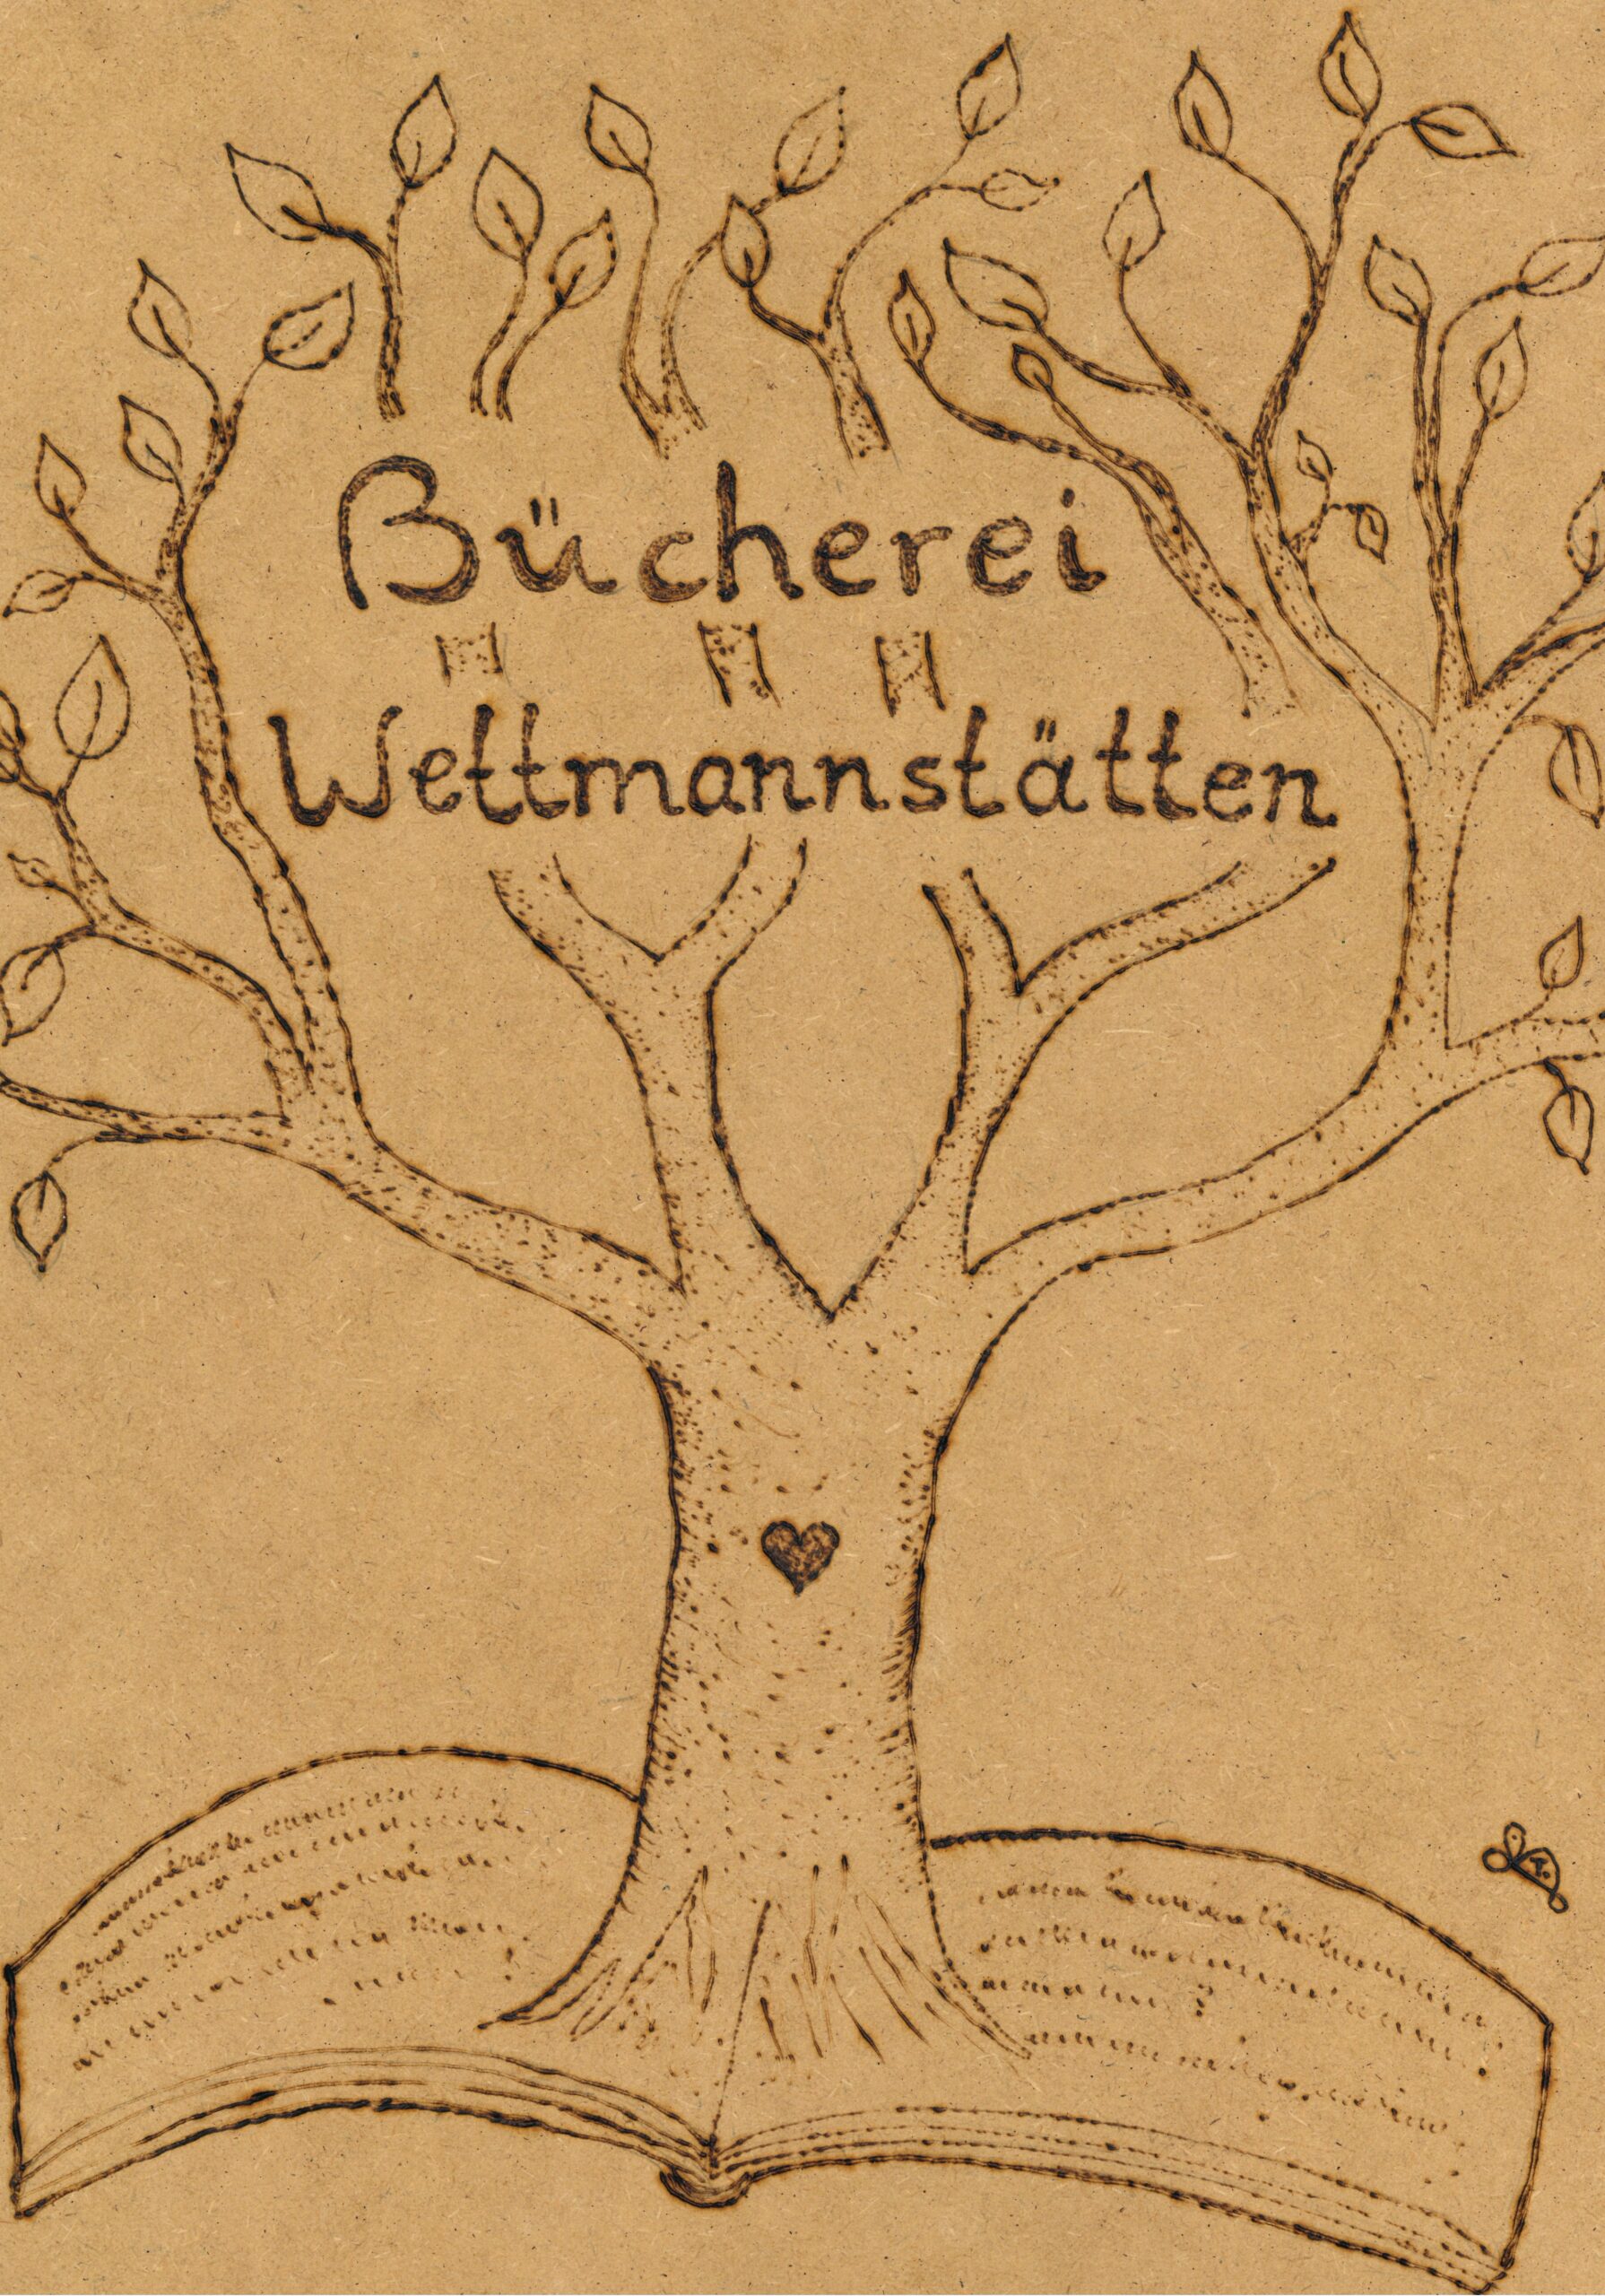 Bücherei
Wettmannstätten
T.